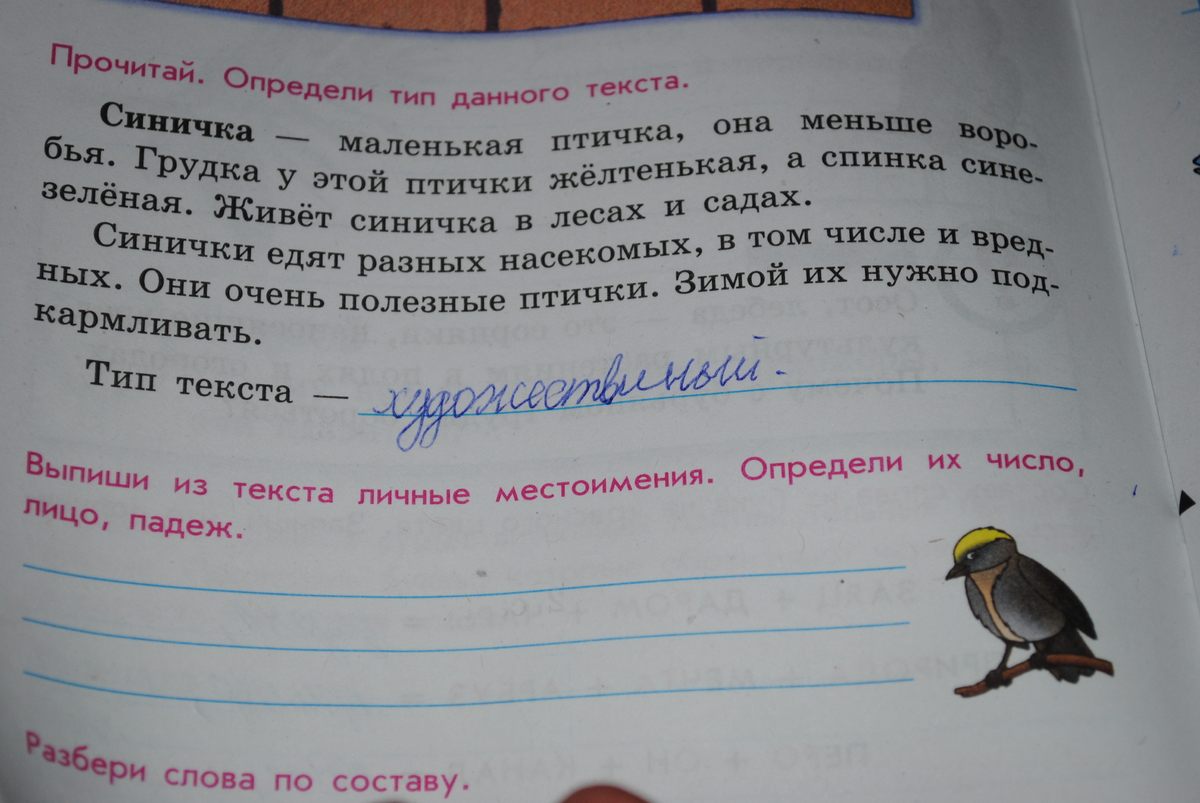 Прочитай. Определи тип данного текста.
Синичка — маленькая птичка, она меньше воро-
бья. Грудка у этой птички жёлтенькая, а спинка сине-
зелёная. Живёт синичка в лесах и садах.
Синички едят разных насекомых, в том числе и вред-
ных. Они очень полезные птички. Зимой их нужно под-
кармливать.
Тип текста — художествиный.
Выпиши из текста личные местоимения. Определи их число,
лицо, падеж.
Разбери слова по составу.